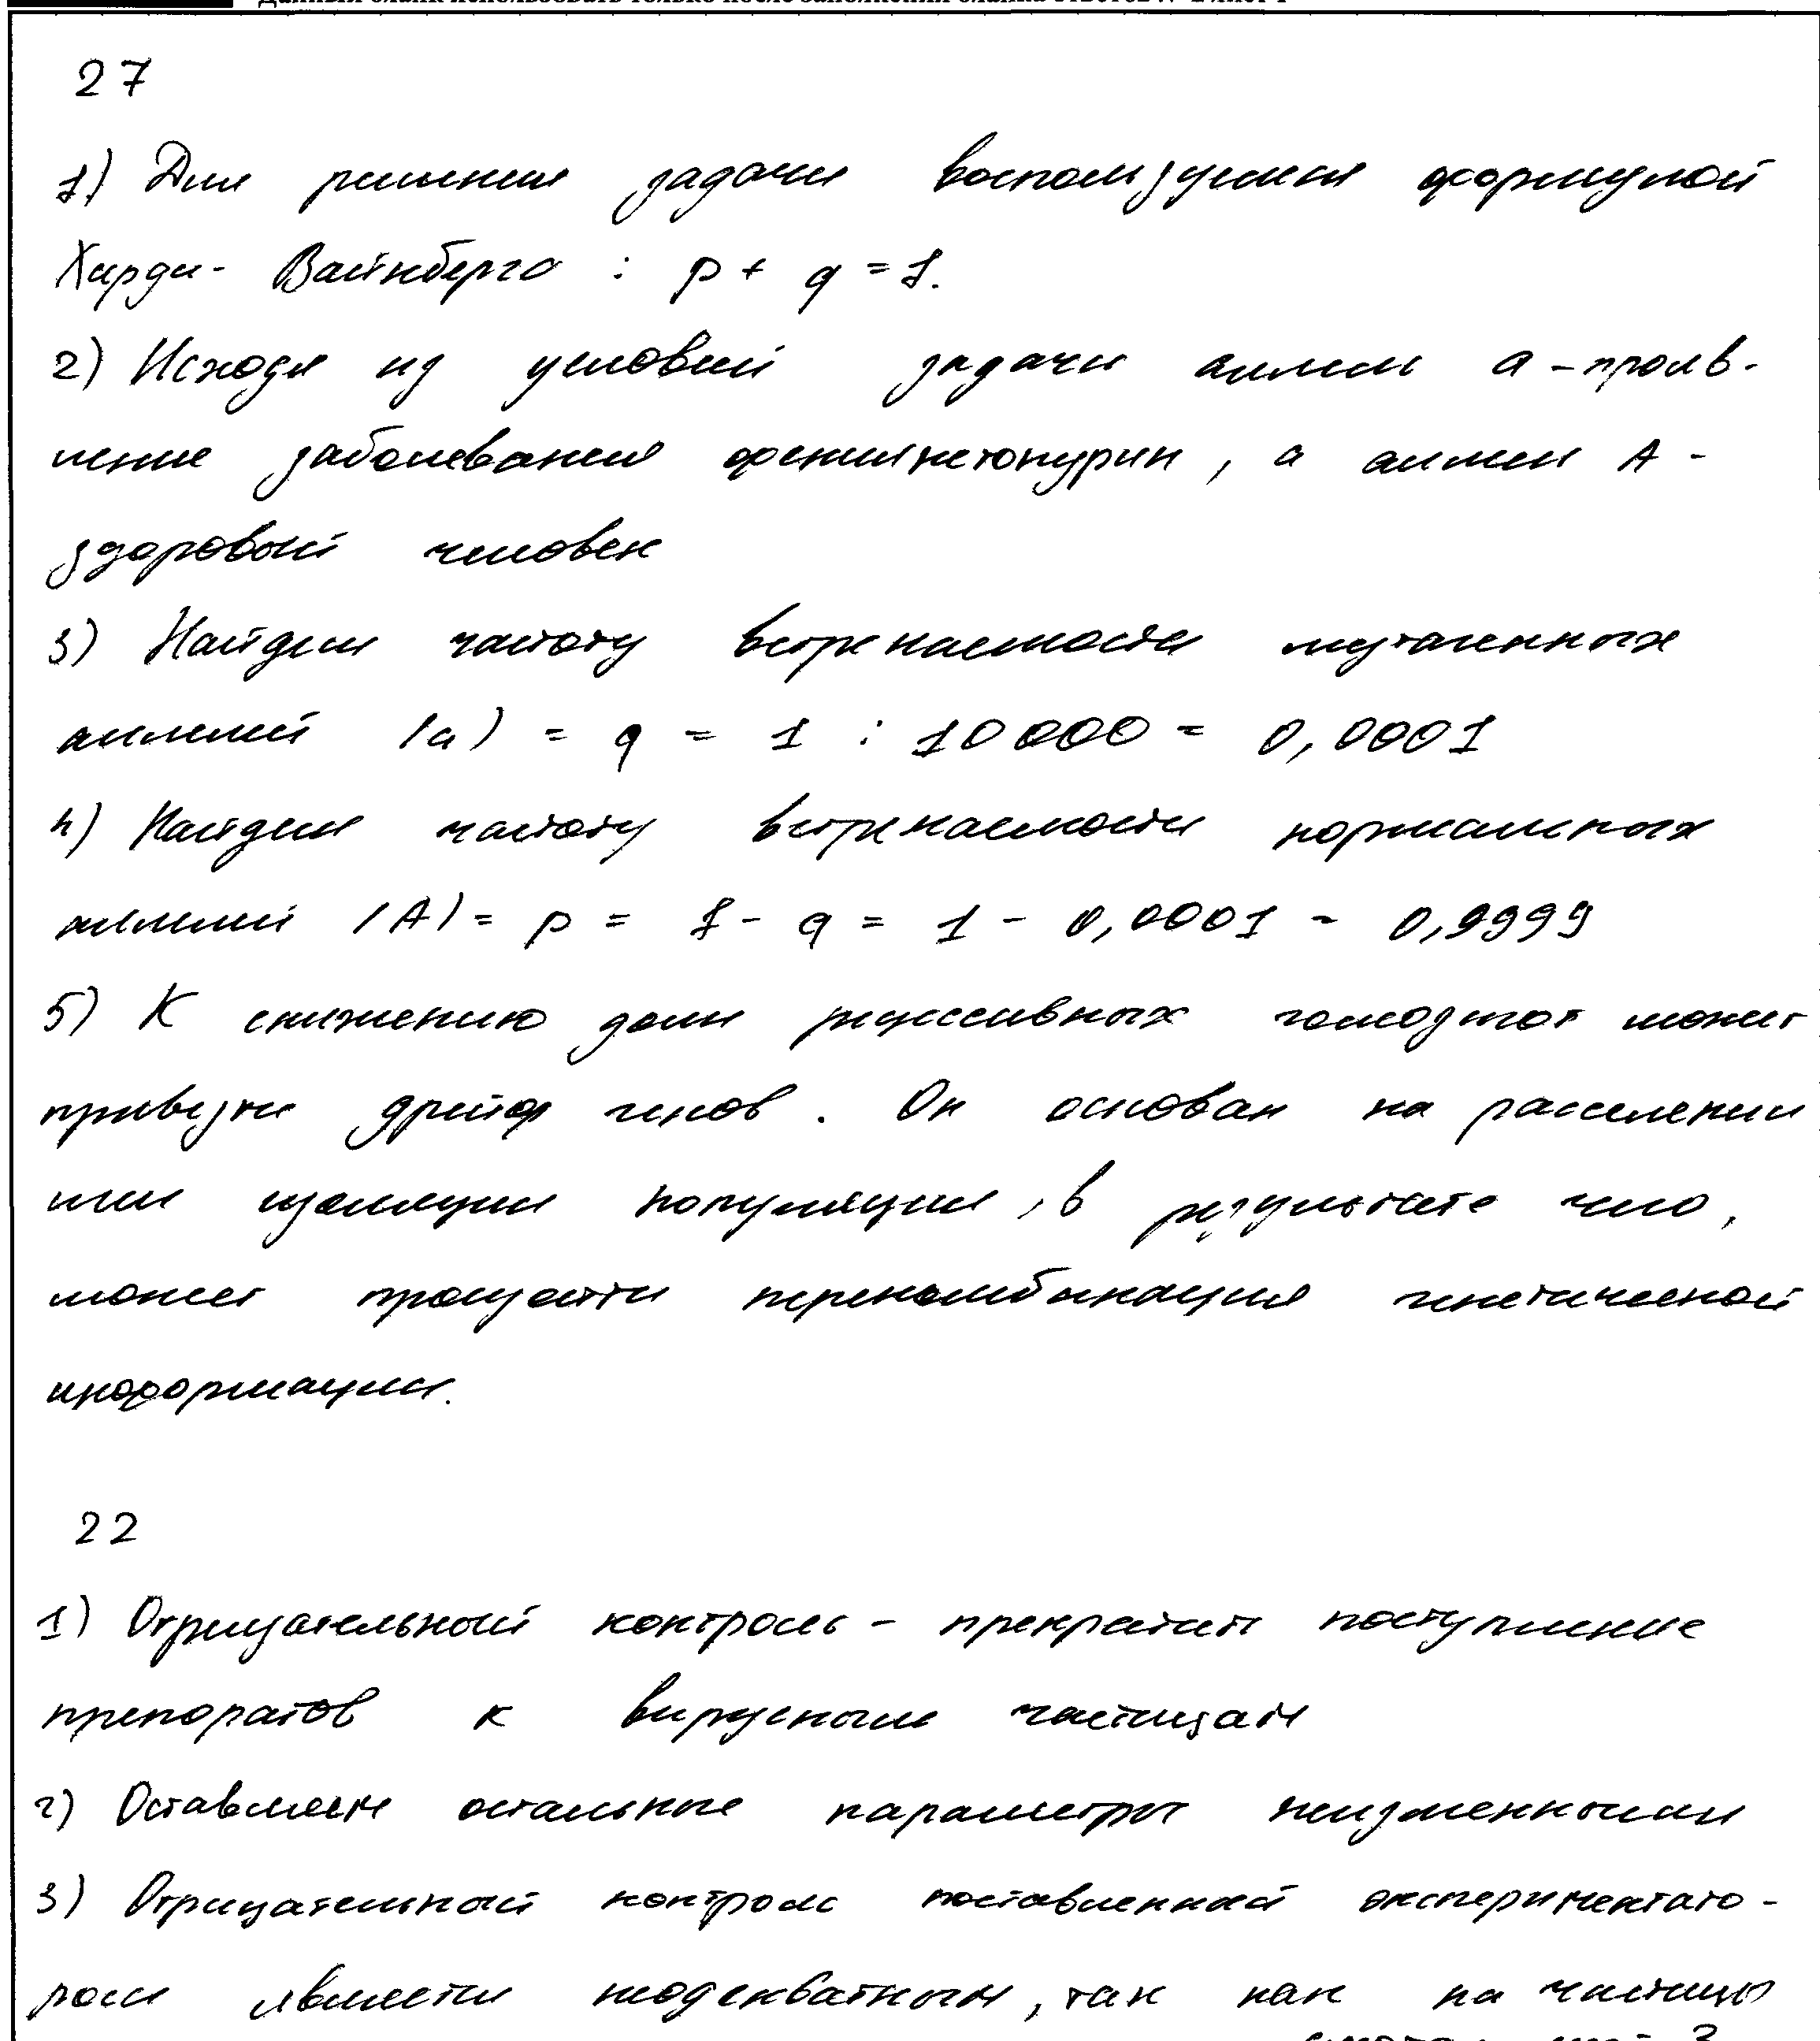 27
1) Для решения задачи воспользуемся формулой
Харди- Вайнберга : p + q = 1.
2) Исходя из условий задачи аллель a - прояв-
ление заболевания фенилкетонурии, а аллель A -
здоровый человек
3) Найдем частоту встречаемости мутантных
аллелей (a) = q = 1 : 10 000 = 0,0001
4) Найдем частоту встречаемости нормальных
аллелей (A) = p = 1 - q = 1 - 0,0001 = 0,9999
5) К снижению доли рецессивных гомозигот может
привезти дрейф генов. Он основан на расселении
или изоляции популяции, в результате чего,
может произойти перекомбинация генетической
информации.
22
1) Отрицательный контроль - прекратить поступление
препоратов к вирусным частицам
2) Оставляем остальные параметры неизменными
3) Отрицательный контроль поставленный экспериментато-
ром является неадекватным, так как на частицы